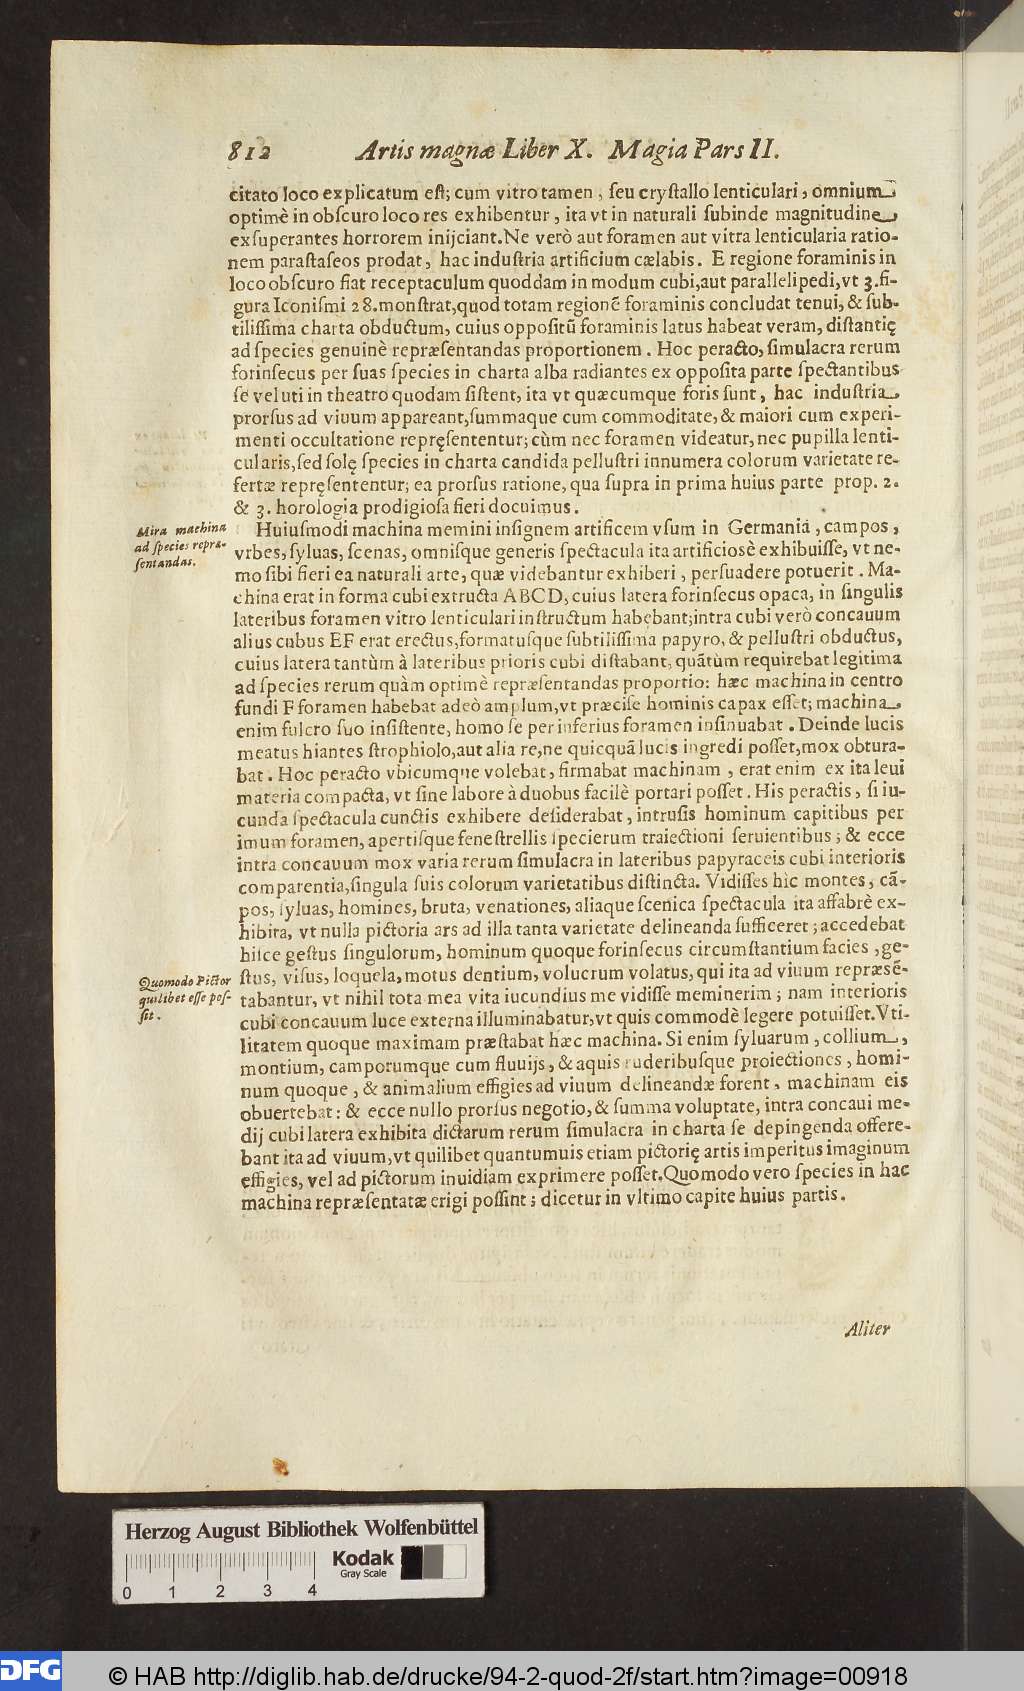 812 Artis magnæ Liber X. Magia Pars II.
citato loco explicatum eſt; cum vitro tamen, ſeu cryſtallo lenticulari, omnium
optimè in obſcuro loco res exhibentur, ita vt in naturali ſubinde magnitudine,
exſuperantes horrorem inijciant. Ne verò aut foramen aut vitra lenticularia ratio-
nem paraſtaſeos prodat, hac induſtria artificium cælabis. E regione foraminis in
loco obſcuro fiat receptaculum quoddam in modum cubi, aut parallelipedi, vt 3. fi-
gura Iconiſmi 28. monſtrat, quod totam regionẽ foraminis concludat tenui, & ſub-
tiliſſima charta obductum, cuius oppoſitũ foraminis latus habeat veram, diſtantię
ad ſpecies genuinè repræſentandas proportionem. Hoc peracto, ſimulacra rerum
forinſecus per ſuas ſpecies in charta alba radiantes ex oppoſita parte ſpectantibus
ſe vel uti in theatro quodam ſiſtent, ita vt quæcumque foris ſunt, hac induſtria
prorſus ad viuum appareant, ſummaque cum commoditate, & maiori cum experi-
menti occultatione repręſententur; cùm nec foramen videatur, nec pupilla lenti-
cularis, ſed ſolę ſpecies in charta candida pelluſtri innumera colorum varietate re-
fertæ repręſententur; ea prorſus ratione, qua ſupra in prima huius parte prop. 2.
& 3. horologia prodigioſa fieri docuimus.
Mira machina
ad ſpecies repræ-
ſentandas.
Huiuſmodi machina memini inſignem artificem vſum in Germania, campos,
vrbes, ſyluas, ſcenas, omniſque generis ſpectacula ita artificiosè exhibuiſſe, vt ne-
mo ſibi fieri ea naturali arte, quæ videbantur exhiberi, perſuadere potuerit. Ma-
china erat in forma cubi extructa ABCD, cuius latera forinſecus opaca, in ſingulis
lateribus foramen vitro lenticulari inſtructum habebant; intra cubi verò concauum
alius cubus EF erat erectus, formatuſque ſubtiliſſima papyro, & pelluſtri obductus,
cuius latera tantùm à lateribus prioris cubi diſtabant, quãtùm requirebat legitima
ad ſpecies rerum quàm optimè repræſentandas proportio: hæc machina in centro
fundi F foramen habebat adeò amplum, vt præciſe hominis capax eſſet; machina
enim fulcro ſuo inſiſtente, homo ſe per inferius foramen inſinuabat. Deinde lucis
meatus hiantes ſtrophiolo, aut alia re, ne quicquã lucis ingredi poſſet, mox obtura-
bat. Hoc peracto vbicumque volebat, firmabat machinam, erat enim ex ita leui
materia compacta, vt ſine labore à duobus facilè portari poſſet. His peractis, ſi iu-
cunda ſpectacula cunctis exhibere deſiderabat, intruſis hominum capitibus per
imum foramen, apertiſque feneſtrellis ſpecierum traiectioni ſeruientibus; & ecce
intra concauum mox varia rerum ſimulacra in lateribus papyraceis cubi interioris
comparentia, ſingula ſuis colorum varietatibus diſtincta. Vidiſſes hìc montes, cã-
pos, ſyluas, homines, bruta, venationes, aliaque ſcenica ſpectacula ita affabrè ex-
hibita, vt nulla pictoria ars ad illa tanta varietate delineanda ſufficeret; accedebat
hiſce geſtus ſingulorum, hominum quoque forinſecus circumſtantium facies, ge-
Quomodo Pictor
quilibet eſſe poſ-
ſit.
ſtus, viſus, loquela, motus dentium, volucrum volatus, qui ita ad viuum repræsẽ-
tabantur, vt nihil tota mea vita iucundius me vidiſſe meminerim; nam interioris
cubi concauum luce externa illuminabatur, vt quis commodè legere potuiſſet. Vti-
litatem quoque maximam præſtabat hæc machina. Si enim ſyluarum, collium,
montium, camporumque cum fluuijs, & aquis ruderibuſque proiectiones, homi-
num quoque, & animalium effigies ad viuum delineandæ forent, machinam eis
obuertebat: & ecce nullo prorſus negotio, & ſumma voluptate, intra concaui me-
dij cubi latera exhibita dictarum rerum ſimulacra in charta ſe depingenda offere-
bant ita ad viuum, vt quilibet quantumuis etiam pictorię artis imperitus imaginum
effigies, vel ad pictorum inuidiam exprimere poſſet. Quomodo vero ſpecies in hac
machina repræſentatæ erigi poſſint; dicetur in vltimo capite huius partis.
Aliter
Herzog August Bibliothek Wolfenbüttel
Kodak
Gray Scale
0 1 2 3 4
DFG © HAB http://diglib.hab.de/drucke/94-2-quod-2f/start.htm?image=00918